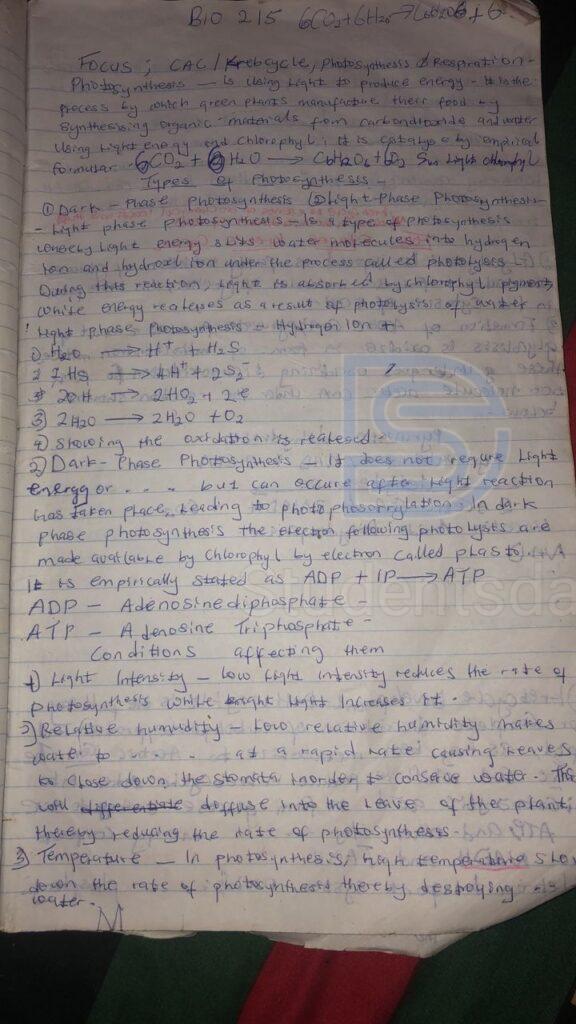 BIO 215 6CO2+6H2O→C6H12O6+6
Focus; CAC/Krebcycle, Photosynthesis & Respiration-
Photosynthesis — is Using Light to produce energy - It is the
process by which green plants manufacture their food by
synthesising organic-materials from carbondioxide and water
Using Light energy and chlorophyl; it is catalyse by empirical
formular 6CO2 + 6H2O → C6H12O6+6O2 Sun Light chlorophyl
Types of Photosynthesis -
① Dark-Phase Photosynthesis ② Light-Phase Photosynthesis-
- Light phase photosynthesis - Is a type of photosynthesis
whereby Light energy slits water molecules into hydrogen
Ion and hydroxil Ion under the process called photolysis
During this reaction, Light is absorbed by chlorophyl pigment,
while energy realeases as a result of photolysis of water in
Light phase photosynthesis - Hydrogen Ion +
① H2O → H+ + H2S
2H → 4H + 2S2
2OH → 2HO2 + 2e
3) 2H2O → 2H2O + O2
4) Showing the oxidation is realesed-
2) Dark-Phase Photosynthesis — It does not requre Light
energy or .... but can occure after Light reaction
has taken place, Leading to photophosorrylation. In dark
phase photosynthesis the electron following photolysis are
made available by chlorophyl by electron called plasto
It is empirically stated as ADP + IP → ATP
Studentsda
ADP — Adenosinediphosphate -
ATP — Adenosine Triphosphate -
Conditions affecting them
1) Light Intensity — Low Light intensity reduces the rate of
photosynthesis while bright Light Increases it.
2) Relative humidity — Low relative humidity makes
water to .. at a rapid rate causing leaves
to close down the stomata inorder to conserve water. This
will diffuse into the leave of the plant
thereby reducing the rate of photosynthesis-
3) Temperature — In photosynthesis, high temperature slow
down the rate of photosynthesis thereby destroying
water.
M